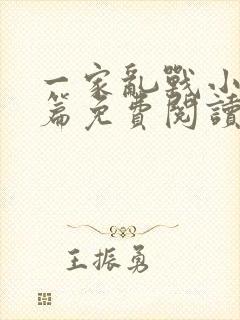 一家亂戰小
篇免費閱讀
王振勇